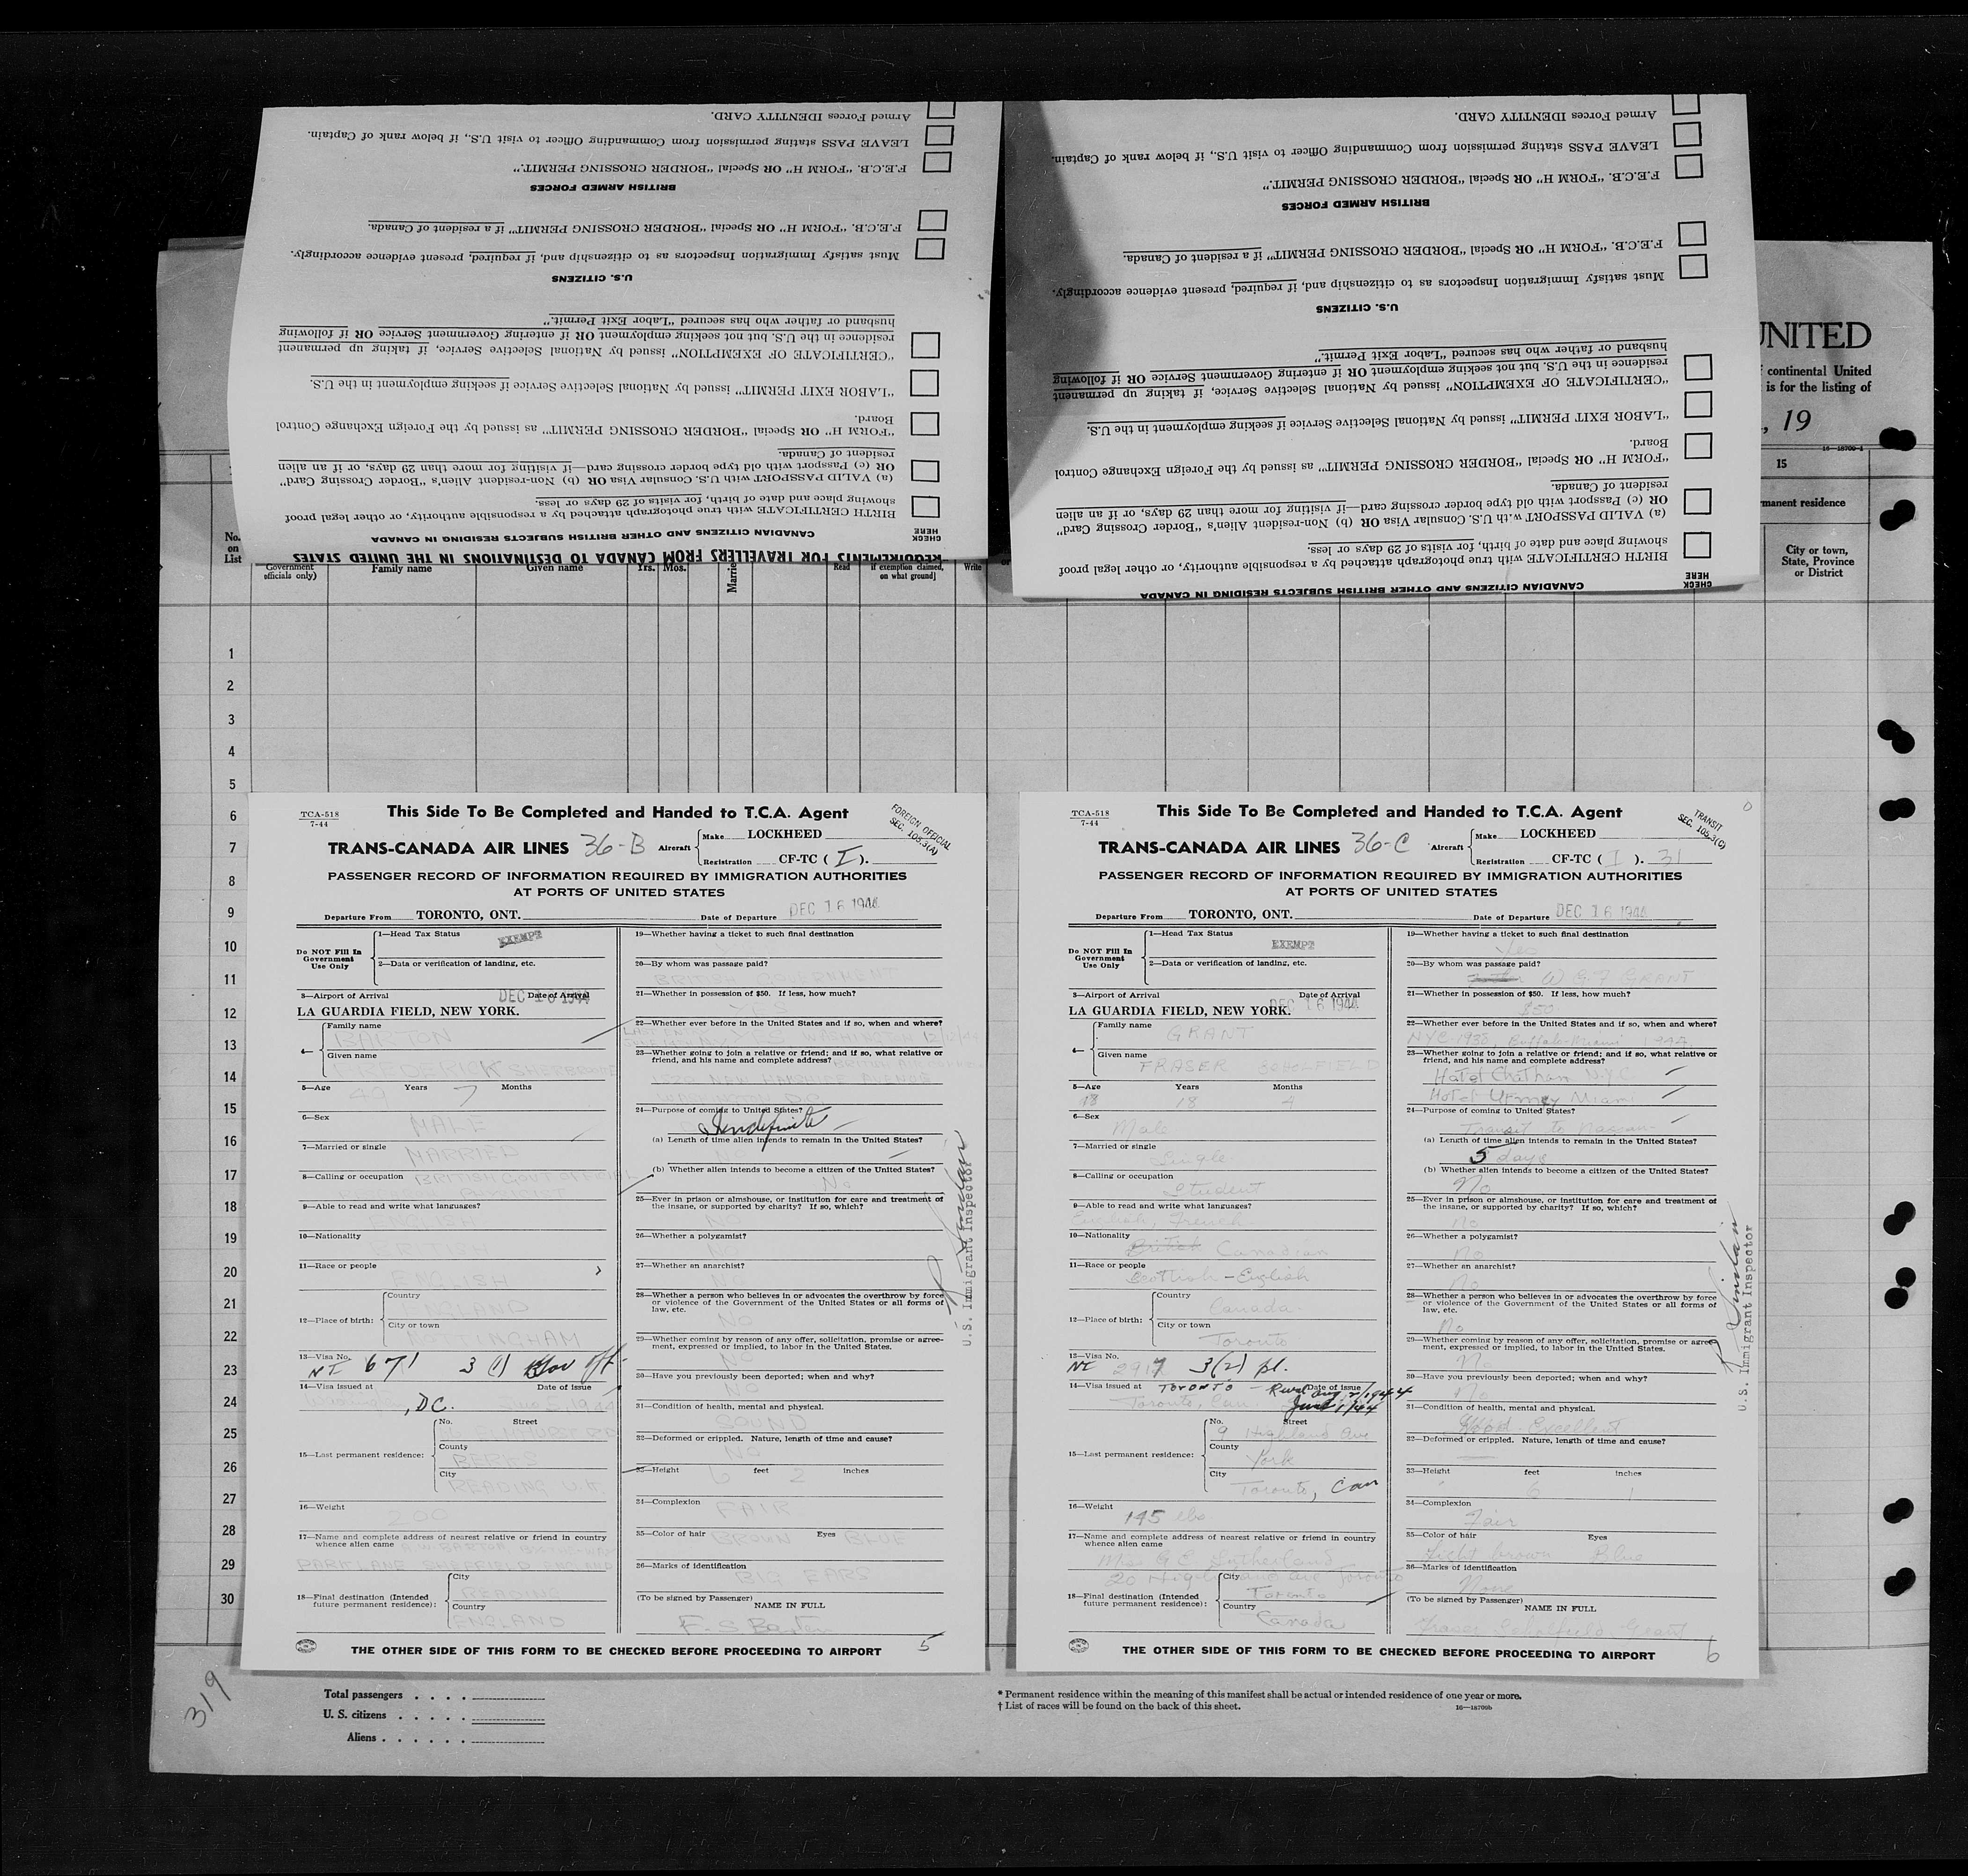 REQUIREMENTS FOR TRAVELLERS FROM CANADA TO DESTINATIONS IN THE UNITED STATES
CHECK HERE
CANADIAN CITIZENS AND OTHER BRITISH SUBJECTS RESIDING IN CANADA
BIRTH CERTIFICATE with true photograph attached by a responsible authority, or other legal proof
showing place and date of birth, for visits of 29 days or less.
(a) VALID PASSPORT with U.S. Consular Visa OR (b) Non-resident Alien's "Border Crossing Card"
OR (c) Passport with old type border crossing card—if visiting for more than 29 days, or if an alien
resident of Canada.
"FORM H" OR Special "BORDER CROSSING PERMIT" as issued by the Foreign Exchange Control
Board.
"LABOR EXIT PERMIT" issued by National Selective Service if seeking employment in the U.S.
"CERTIFICATE OF EXEMPTION" issued by National Selective Service, if taking up permanent
residence in the U.S. but not seeking employment OR if entering Government Service OR if following
husband or father who has secured "Labor Exit Permit."
U.S. CITIZENS
Must satisfy Immigration Inspectors as to citizenship and, if required, present evidence accordingly.
F.E.C.B. "FORM H" OR Special "BORDER CROSSING PERMIT" if a resident of Canada.
BRITISH ARMED FORCES
F.E.C.B. "FORM H" OR Special "BORDER CROSSING PERMIT."
LEAVE PASS stating permission from Commanding Officer to visit U.S., if below rank of Captain.
Armed Forces IDENTITY CARD.
CHECK HERE
CANADIAN CITIZENS AND OTHER BRITISH SUBJECTS RESIDING IN CANADA
BIRTH CERTIFICATE with true photograph attached by a responsible authority, or other legal proof
showing place and date of birth, for visits of 29 days or less.
(a) VALID PASSPORT with U.S. Consular Visa OR (b) Non-resident Alien's "Border Crossing Card"
OR (c) Passport with old type border crossing card—if visiting for more than 29 days, or if an alien
resident of Canada.
"FORM H" OR Special "BORDER CROSSING PERMIT" as issued by the Foreign Exchange Control
Board.
"LABOR EXIT PERMIT" issued by National Selective Service if seeking employment in the U.S.
"CERTIFICATE OF EXEMPTION" issued by National Selective Service, if taking up permanent
residence in the U.S. but not seeking employment OR if entering Government Service OR if following
husband or father who has secured "Labor Exit Permit."
U.S. CITIZENS
Must satisfy Immigration Inspectors as to citizenship and, if required, present evidence accordingly.
F.E.C.B. "FORM H" OR Special "BORDER CROSSING PERMIT" if a resident of Canada.
BRITISH ARMED FORCES
F.E.C.B. "FORM H" OR Special "BORDER CROSSING PERMIT."
LEAVE PASS stating permission from Commanding Officer to visit U.S., if below rank of Captain.
Armed Forces IDENTITY CARD.
UNITED
continental United
is for the listing of
, 19
16—18709-1
15
permanent residence
City or town,
State, Province
or District
No.
on
List
Government
officials only)
Family name
Given name
Yrs.
Mos.
Read
if exemption claimed,
on what ground]
Write
1
2
3
4
5
6
7
8
9
10
11
12
13
14
15
16
17
18
19
20
21
22
23
24
25
26
27
28
29
30
TCA-518
7-44
This Side To Be Completed and Handed to T.C.A. Agent
FOREIGN OFFICIAL
SEC. 105.3(A)
TRANS-CANADA AIR LINES 36-B
Aircraft
Make LOCKHEED
Registration CF-TC ( I ).
PASSENGER RECORD OF INFORMATION REQUIRED BY IMMIGRATION AUTHORITIES
AT PORTS OF UNITED STATES
Departure From TORONTO, ONT.
Date of Departure DEC 16 1944
Do NOT Fill In
Government
Use Only
1—Head Tax Status EXEMPT
2—Data or verification of landing, etc.
3—Airport of Arrival
Date of Arrival
DEC 16 1944
LA GUARDIA FIELD, NEW YORK.
4—
Family name
BARTON
Given name
5—Age
Years
Months
49 7
6—Sex
MALE
7—Married or single
MARRIED
8—Calling or occupation BRITISH GOVT OFFICIAL
9—Able to read and write what languages?
10—Nationality
11—Race or people
ENGLISH
12—Place of birth:
Country
ENGLAND
City or town
13—Visa No.
NI 671 3 (1) Gov Off.
14—Visa issued at
Date of issue
, D.C.
15—Last permanent residence:
No.
Street
County
BERKS
City
READING U.K.
16—Weight
200
17—Name and complete address of nearest relative or friend in country
whence alien came
PARK LANE SHEFFIELD ENGLAND
18—Final destination (Intended
future permanent residence):
City
READING
Country
ENGLAND
19—Whether having a ticket to such final destination
20—By whom was passage paid?
21—Whether in possession of $50. If less, how much?
YES
22—Whether ever before in the United States and if so, when and where?
23—Whether going to join a relative or friend; and if so, what relative or
friend, and his name and complete address?
24—Purpose of coming to United States?
Indefinite
(a) Length of time alien intends to remain in the United States?
(b) Whether alien intends to become a citizen of the United States?
No
25—Ever in prison or almshouse, or institution for care and treatment of
the insane, or supported by charity? If so, which?
NO
26—Whether a polygamist?
NO
27—Whether an anarchist?
NO
28—Whether a person who believes in or advocates the overthrow by force
or violence of the Government of the United States or all forms of
law, etc.
NO
29—Whether coming by reason of any offer, solicitation, promise or agree-
ment, expressed or implied, to labor in the United States.
NO
30—Have you previously been deported; when and why?
NO
31—Condition of health, mental and physical.
SOUND
32—Deformed or crippled. Nature, length of time and cause?
NO
33—Height 6 feet 2 inches
34—Complexion
FAIR
35—Color of hair BROWN Eyes BLUE
36—Marks of identification
BIG EARS
(To be signed by Passenger)
NAME IN FULL
F. S. Barton
5
U.S. Immigrant Inspector
THE OTHER SIDE OF THIS FORM TO BE CHECKED BEFORE PROCEEDING TO AIRPORT
TCA-518
7-44
This Side To Be Completed and Handed to T.C.A. Agent
TRANSIT
SEC. 105.3(C)
TRANS-CANADA AIR LINES 36-C
Aircraft
Make LOCKHEED
Registration CF-TC ( I ). 31
PASSENGER RECORD OF INFORMATION REQUIRED BY IMMIGRATION AUTHORITIES
AT PORTS OF UNITED STATES
Departure From TORONTO, ONT.
Date of Departure DEC 16 1944
Do NOT Fill In
Government
Use Only
1—Head Tax Status
EXEMPT
2—Data or verification of landing, etc.
3—Airport of Arrival
Date of Arrival
DEC 16 1944
LA GUARDIA FIELD, NEW YORK.
4—
Family name
GRANT
Given name
FRASER SCHOLFIELD
5—Age
Years
Months
18 18 4
6—Sex
Male
7—Married or single
Single
8—Calling or occupation
Student
9—Able to read and write what languages?
English, French
10—Nationality
British Canadian
11—Race or people
Scottish-English
12—Place of birth:
Country
Canada
City or town
Toronto
13—Visa No.
NI 2917 3(2) pl.
14—Visa issued at TORONTO
Date of issue
Toronto, Can.
15—Last permanent residence:
No.
Street
9 Highland Ave
County
York
City
Toronto, Can
16—Weight
145 lbs
17—Name and complete address of nearest relative or friend in country
whence alien came
G E Sutherland
20 Highland Ave Toronto
18—Final destination (Intended
future permanent residence):
City
Toronto
Country
Canada
19—Whether having a ticket to such final destination
Yes
20—By whom was passage paid?
GRANT
21—Whether in possession of $50. If less, how much?
$50
22—Whether ever before in the United States and if so, when and where?
NYC 1938, Buffalo-Miami 1944
23—Whether going to join a relative or friend; and if so, what relative or
friend, and his name and complete address?
Hotel Chatham N.Y.C
Hotel Urmey Miami
24—Purpose of coming to United States?
Transit to Nassau
(a) Length of time alien intends to remain in the United States?
5 days
(b) Whether alien intends to become a citizen of the United States?
No
25—Ever in prison or almshouse, or institution for care and treatment of
the insane, or supported by charity? If so, which?
no
26—Whether a polygamist?
no
27—Whether an anarchist?
no
28—Whether a person who believes in or advocates the overthrow by force
or violence of the Government of the United States or all forms of
law, etc.
no
29—Whether coming by reason of any offer, solicitation, promise or agree-
ment, expressed or implied, to labor in the United States.
no
30—Have you previously been deported; when and why?
no
31—Condition of health, mental and physical.
Good Excellent
32—Deformed or crippled. Nature, length of time and cause?
33—Height feet inches
6 1
34—Complexion
Fair
35—Color of hair Eyes
Light brown Blue
36—Marks of identification
None
(To be signed by Passenger)
NAME IN FULL
Fraser Scholfield Grant
6
U.S. Immigrant Inspector
THE OTHER SIDE OF THIS FORM TO BE CHECKED BEFORE PROCEEDING TO AIRPORT
319
Total passengers . . . .
U. S. citizens . . . . .
Aliens . . . . . .
* Permanent residence within the meaning of this manifest shall be actual or intended residence of one year or more.
† List of races will be found on the back of this sheet.
16—18709b